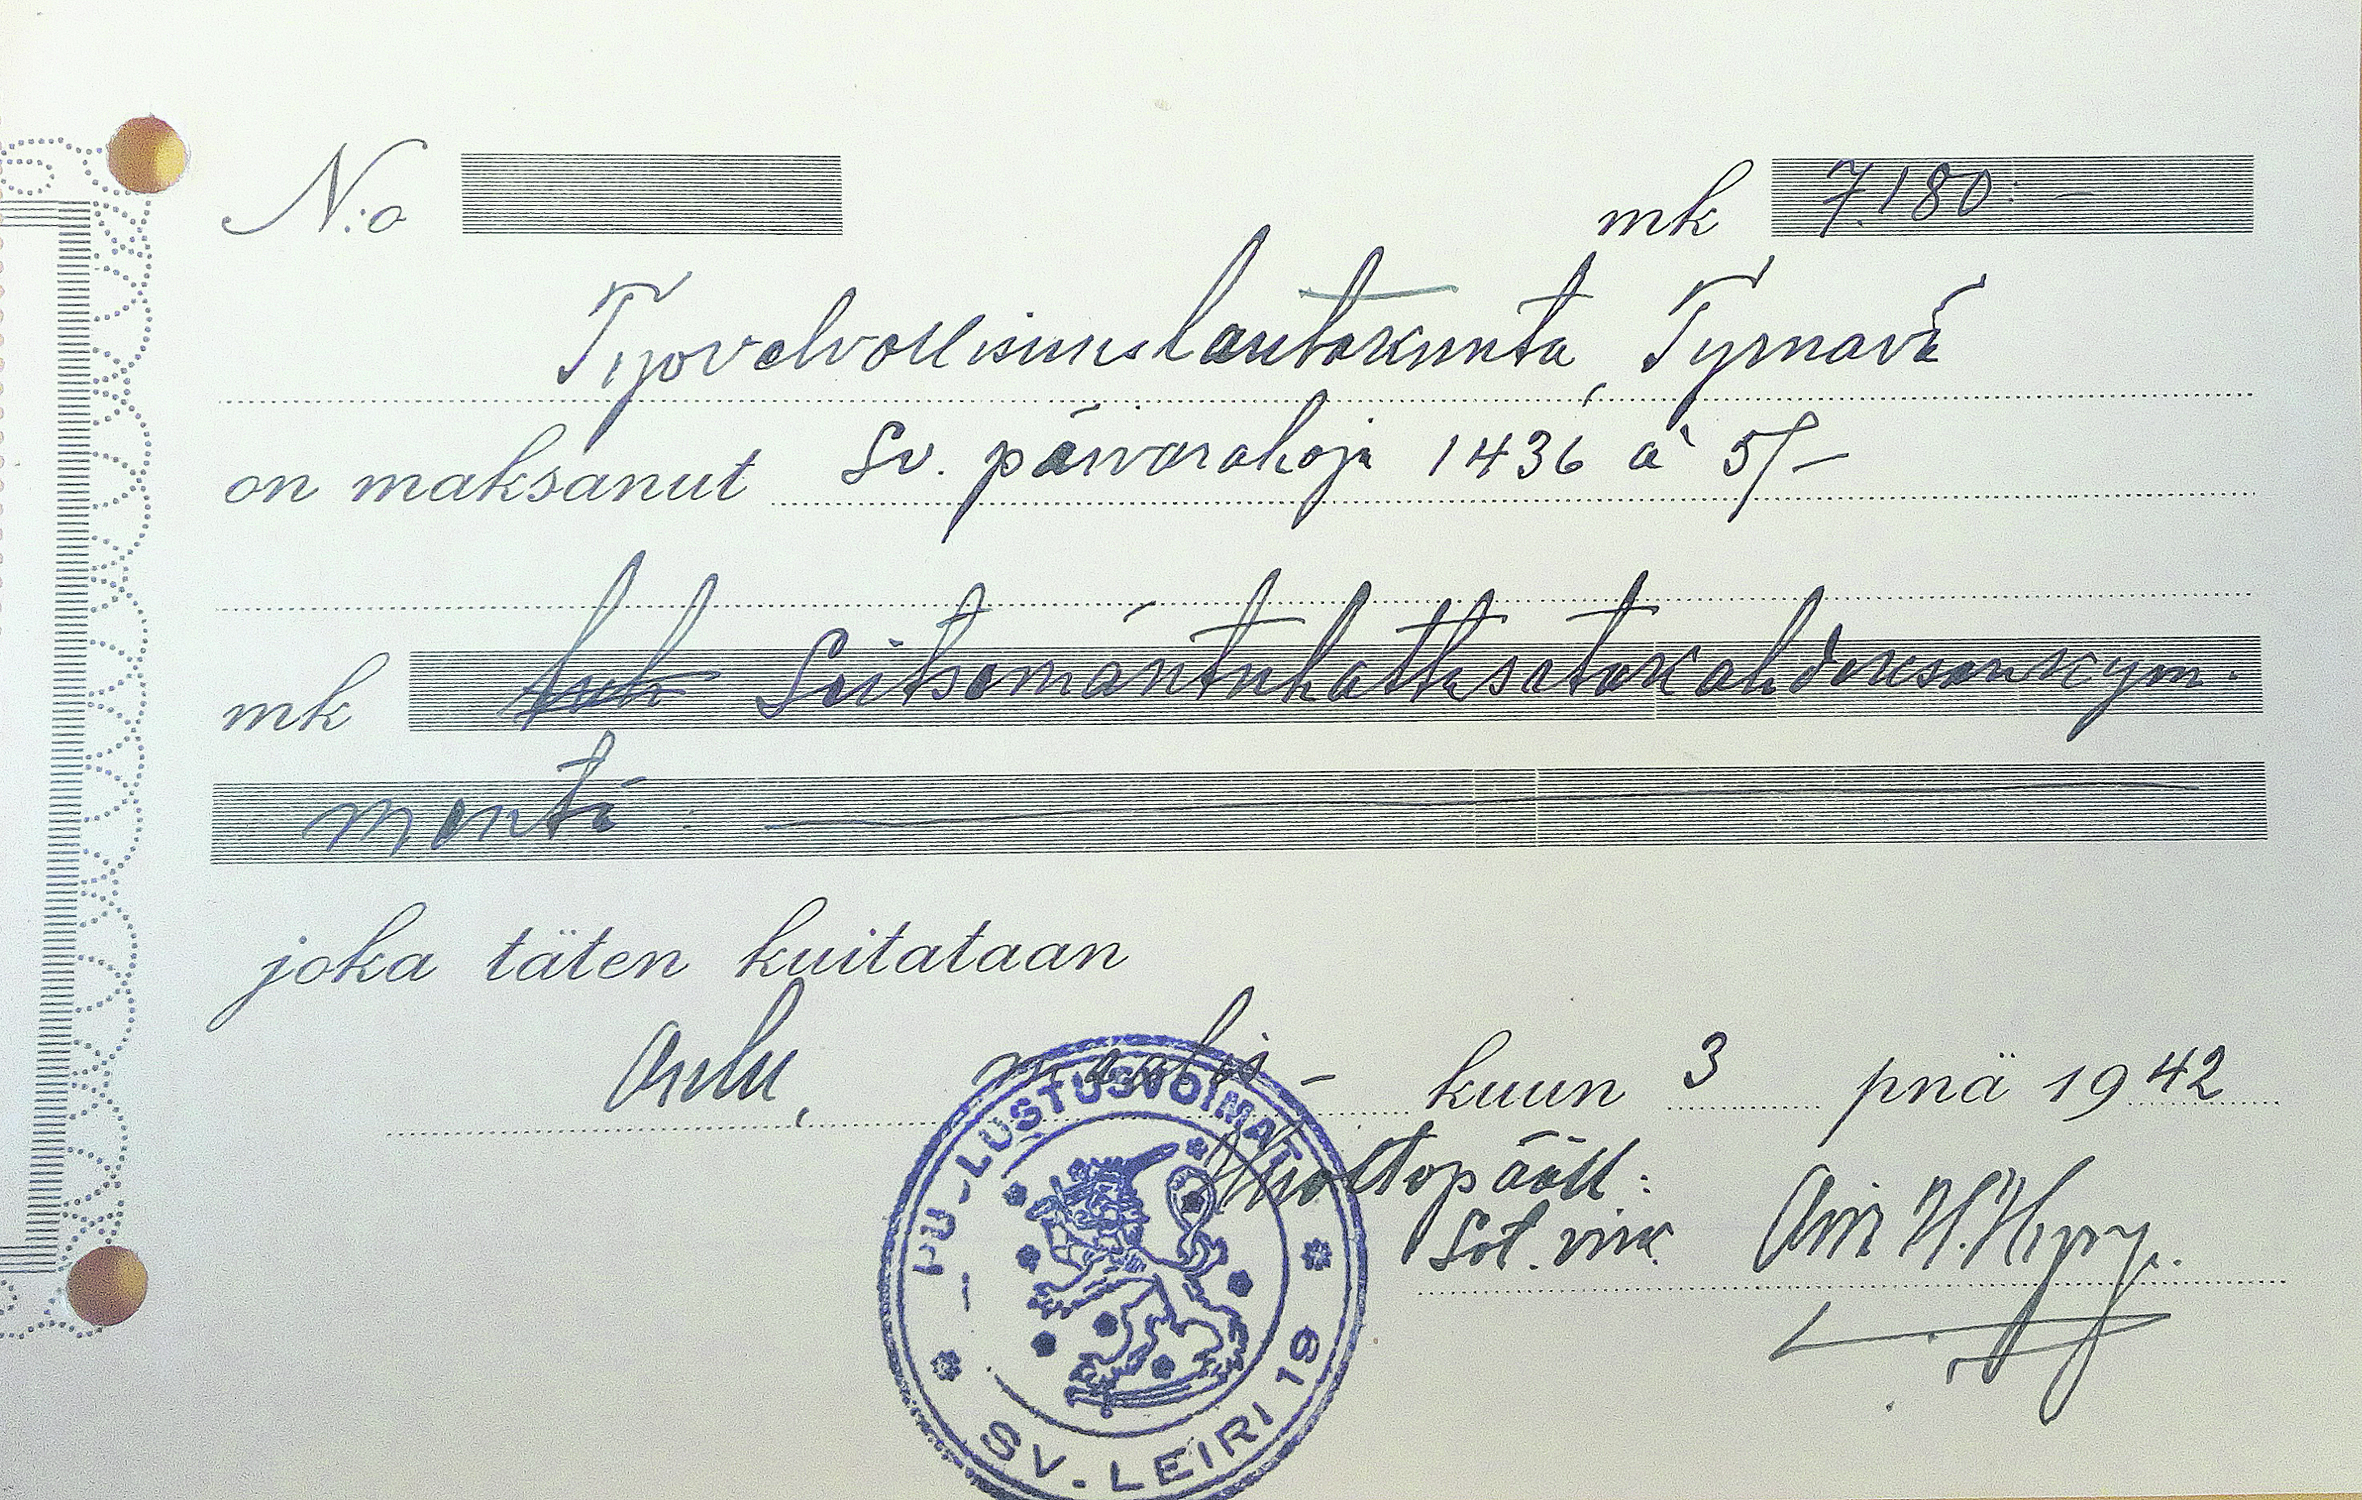 N:o mk 7.180:-
Työvelvollisuuslautakunta, Tyrnävä
on maksanut Sv. päivärahoja 1436 à 5/-
mk Seitsemäntuhattasatakahdeksankym-
mentä:
joka täten kuitataan
Oulu, maalis- kuun 3 pnä 1942
Huoltopääll:
Sot. virk.
PU-LUSTUSVOIMAT
SV.-LEIRI 19